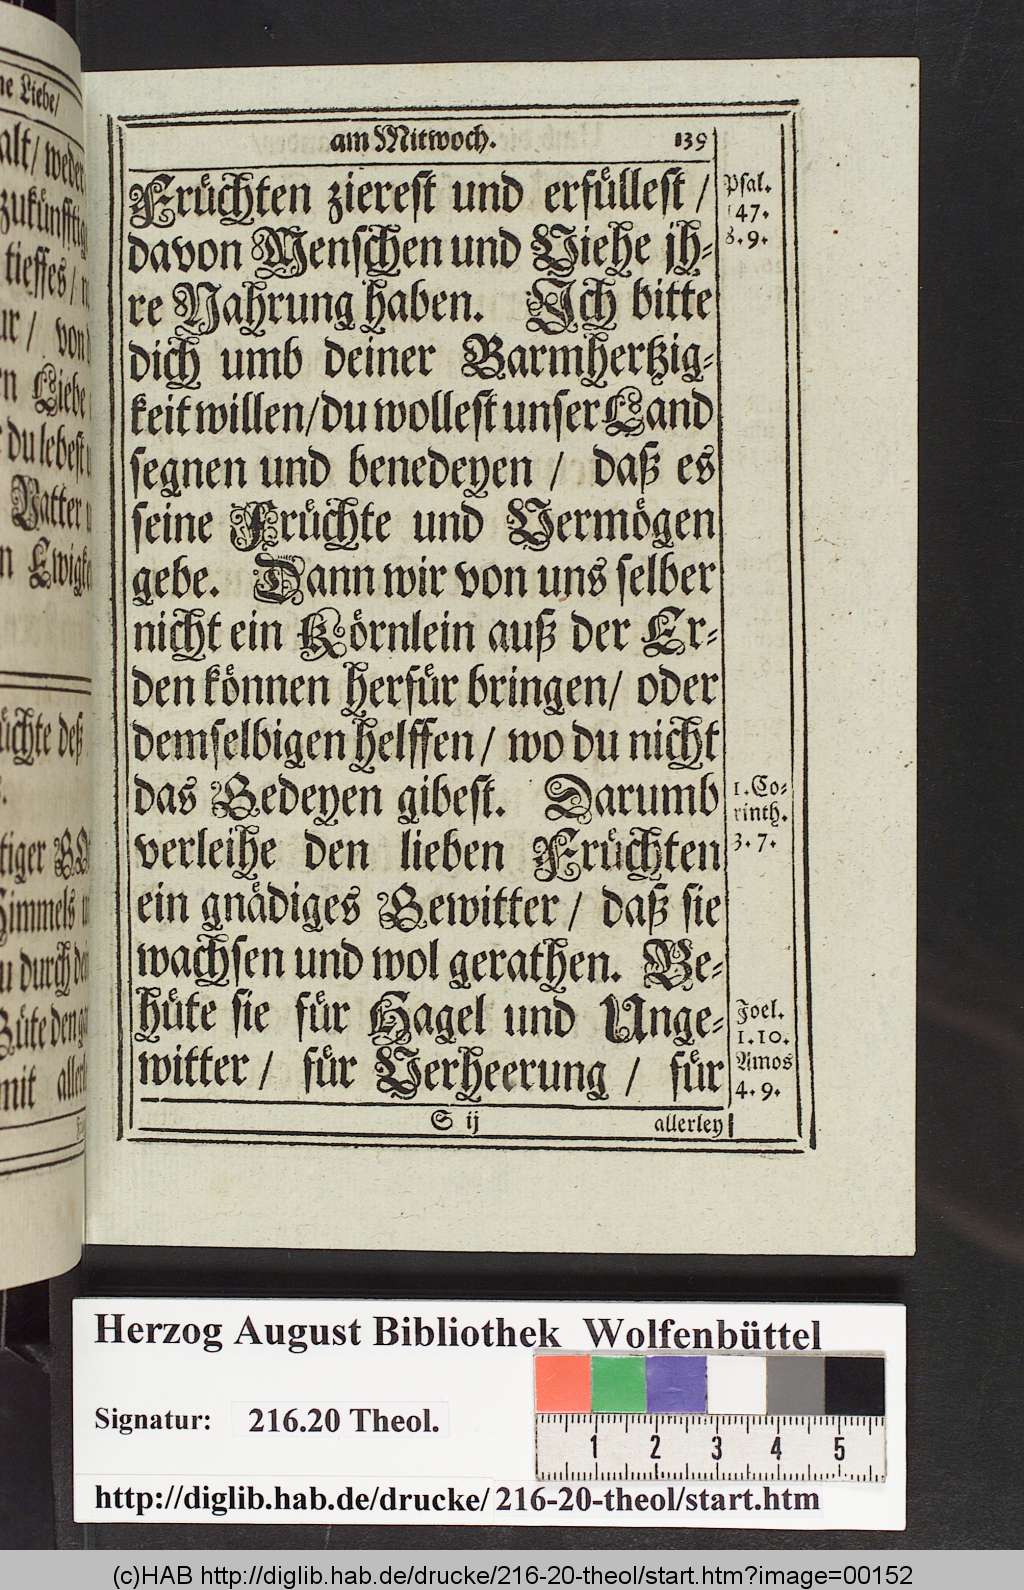 ne Liebe/
alt/ weder
zukünfftig
tieffes/
ur/ von
n Liebe
du lebest
Vatter
n Ewigke
üchte deß
tiger GO
Himmels
u durch dei
Güte den
mit allerl
am Mitwoch. 139
Früchten zierest und erfüllest /
davon Menschen und Viehe jh-
re Nahrung haben. Ich bitte
dich umb deiner Barmhertzig-
keit willen/ du wollest unser Land
segnen und benedeyen / daß es
seine Früchte und Vermögen
gebe. Dann wir von uns selber
nicht ein Körnlein auß der Er-
den können herfür bringen/ oder
demselbigen helffen/ wo du nicht
das Gedeyen gibest. Darumb
verleihe den lieben Früchten
ein gnädiges Gewitter/ daß sie
wachsen und wol gerathen. Be-
hüte sie für Hagel und Unge-
witter/ für Verheerung / für
S ij allerley
Psal.
147.
8. 9.
1. Co-
rinth.
3. 7.
Joel.
1. 10.
Amos
4. 9.
Herzog August Bibliothek Wolfenbüttel
Signatur: 216.20 Theol.
1 2 3 4 5
http://diglib.hab.de/drucke/216-20-theol/start.htm
(c)HAB http://diglib.hab.de/drucke/216-20-theol/start.htm?image=00152